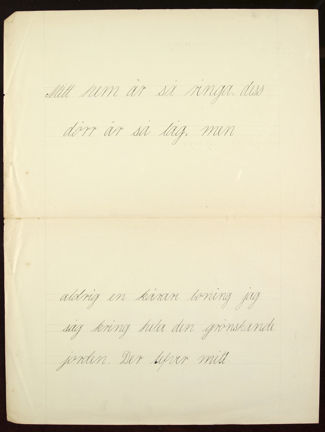 Mitt hem är så ringa, dess
dörr är så låg, men
aldrig en kärare boning jag
såg kring hela den grönskande
jorden. Der lefver mitt